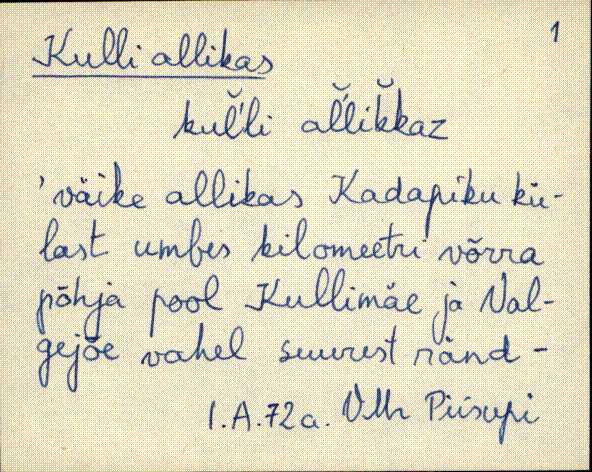 1
Kulli allikas
kuĺ̆li aĺ̆lik̆kaz
'väike allikas Kadapiku kü-
last umbes kilomeetri võrra
põhja pool Kullimäe ja Val-
gejõe vahel suurest ränd-
I.A.72a. Piisupi